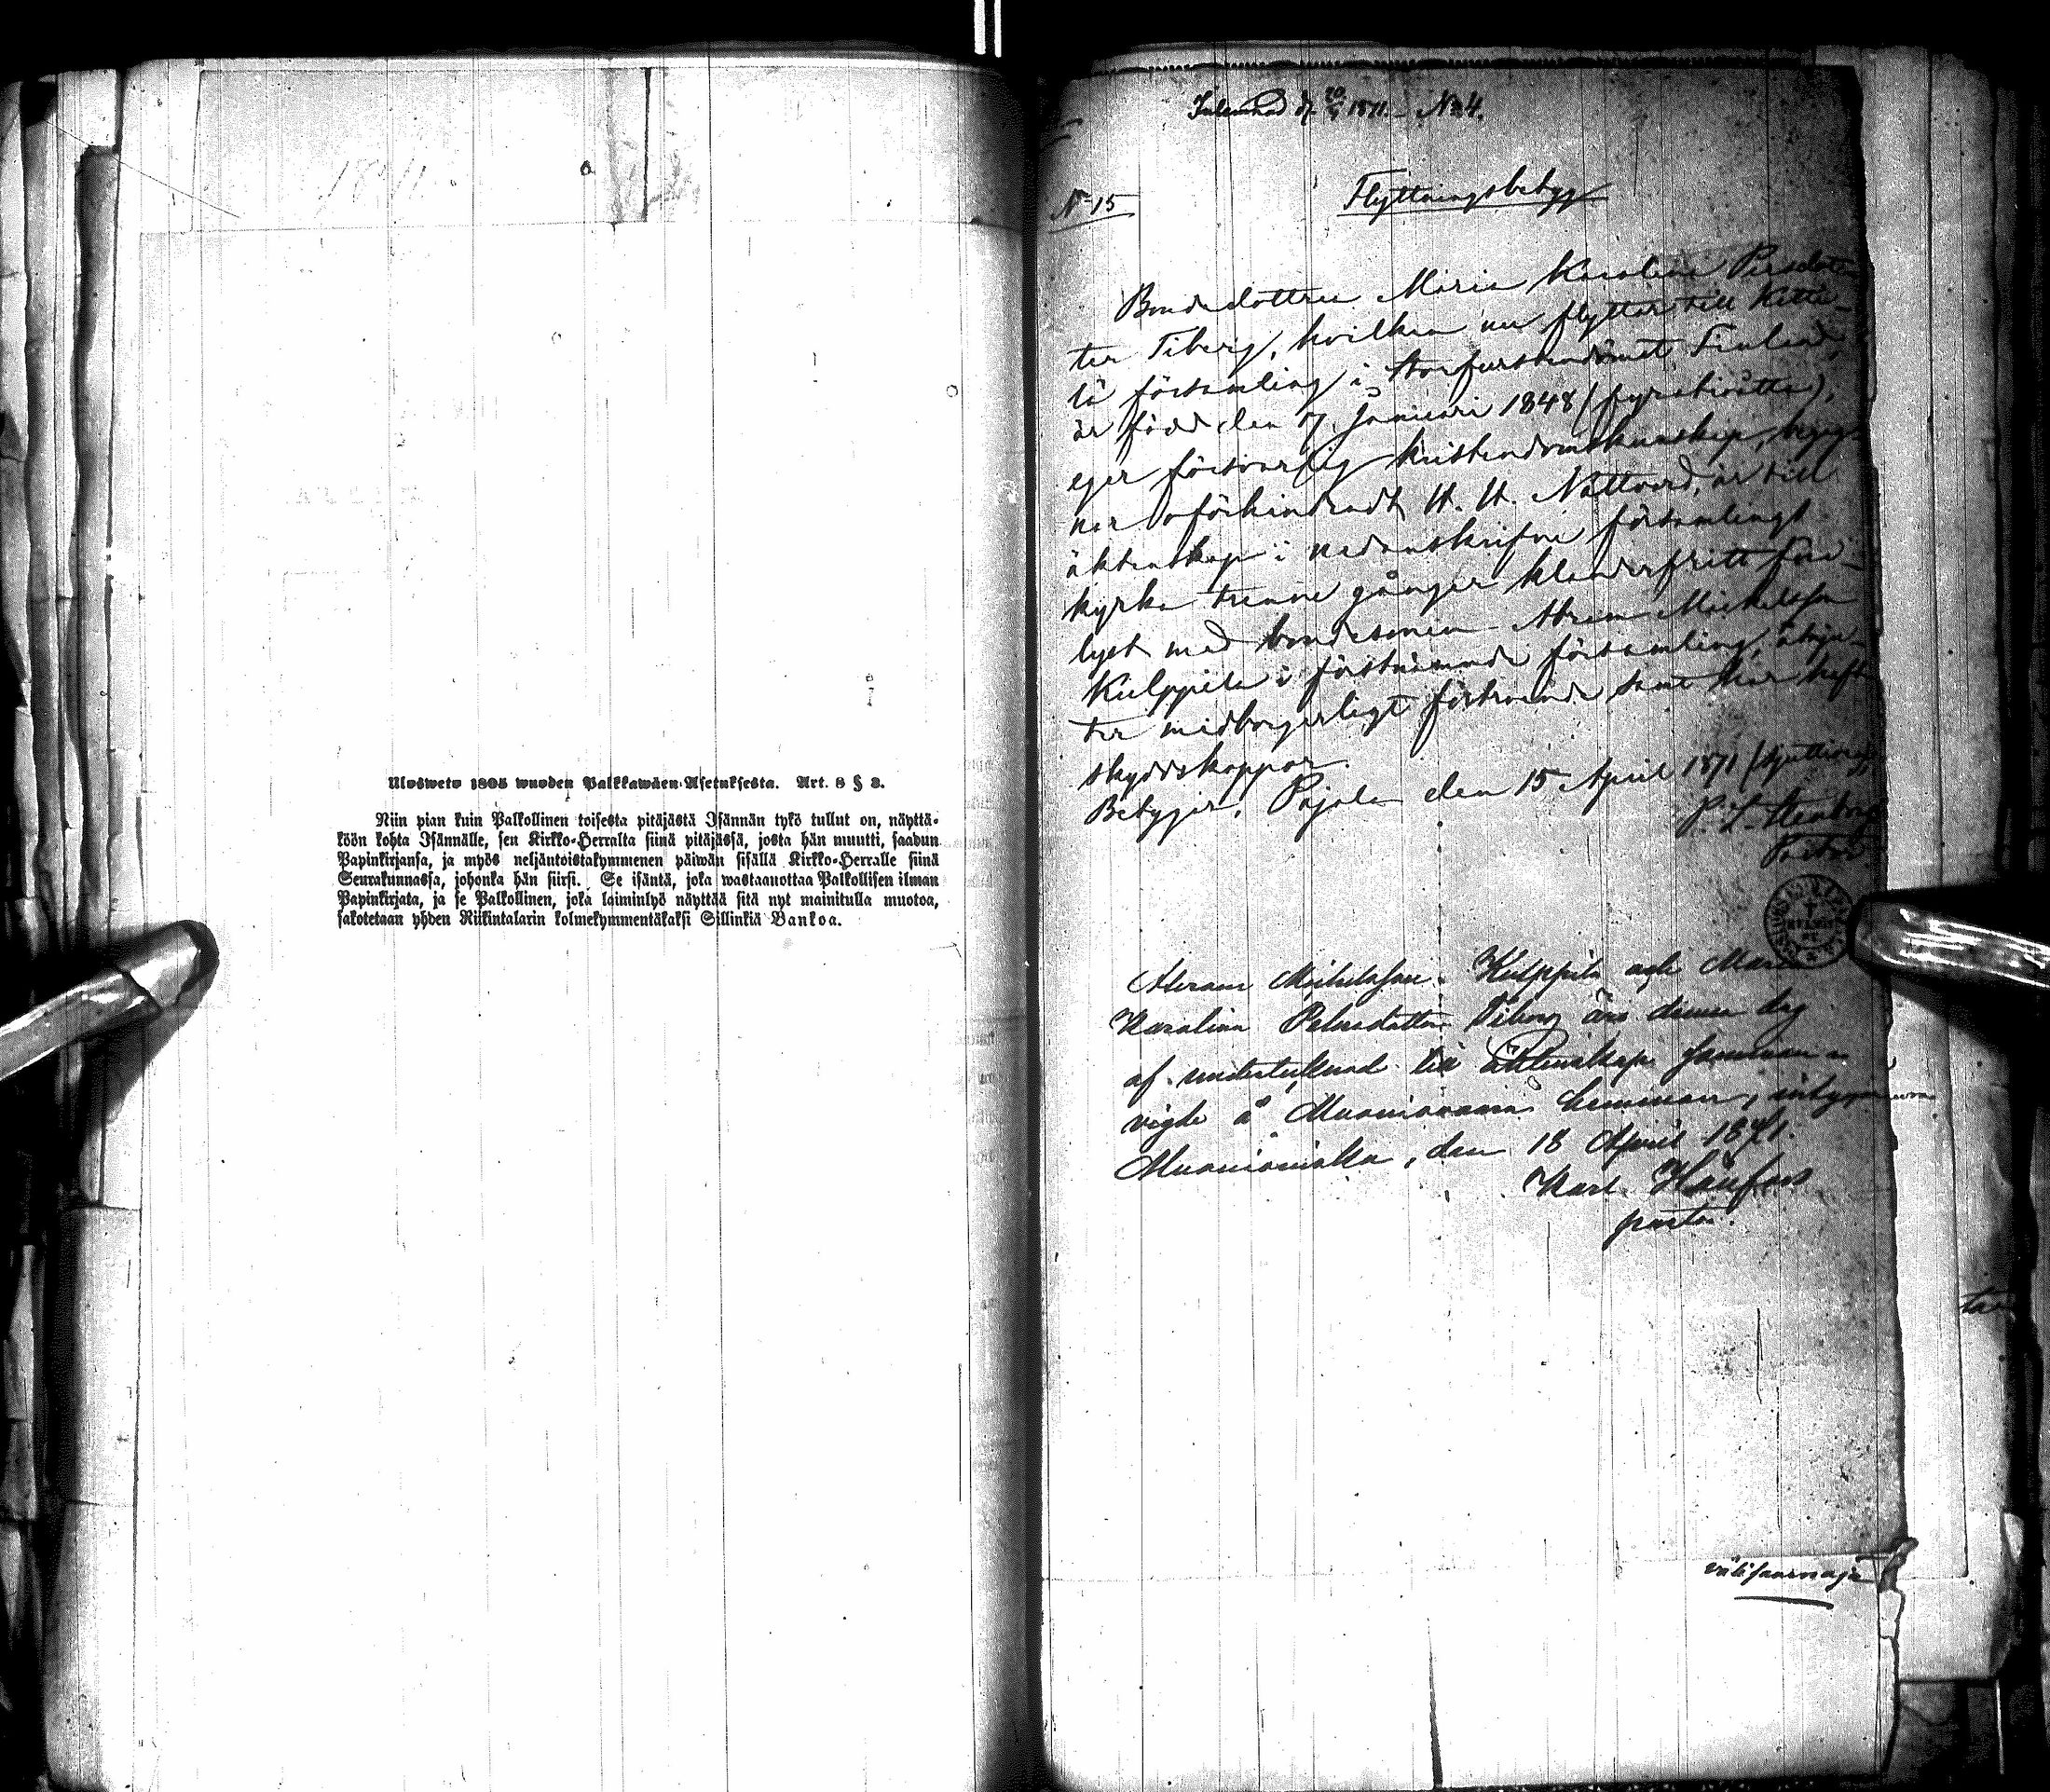 1871
Ulosweto 1805 wuoden Palkkawäen-Asetuksesta. Art. 8 § 3.
Niin pian kuin Palkollinen toisesta pitäjästä Isännän tykö tullut on, näyttä-
köön kohta Isännälle, sen Kirkko-Herralta siinä pitäjässä, josta hän muutti, saadun
Papinkirjansa, ja myös neljäntoistakymmenen päiwän sisällä Kirkko-Herralle siinä
Seurakunnassa, johonka hän siirsi. Se isäntä, joka wastaanottaa Palkollisen ilman
Papinkirjata, ja se Palkollinen, joka laiminlyö näyttää sitä nyt mainitulla muotoa,
sakotetaan yhden Riikintalarin kolmekymmentäkaksi Sillinkiä Bankoa.
1871. No 4.
No 15
Flyttningsbetyg
Bondedottren Maria Karolina Persdot-
ter Tiberg, hvilken nu flyttar till Kitti-
lä församling i Storfurstendömet Finland,
är född den 7 Januari 1848 (fyratioåtta),
eger försvarlig kristendomskunskap, begag-
nar oförhindradt H. H. Nattvard, är till
äktenskap i nedanskrifne församlings
kyrka trenne gånger klanderfritt förr-
lyst med bondesonen Abram Mickelsson
Kulppila i förstnämnde församling, åtnju-
ter medborgerligt förtroende samt har haft
skyddskoppor.
Betygar, Pajala den 15 April 1871 (sjuttioett)
P. L. Stenborg
Pastor.
Abram Michelsson Kulppila och Maria
Karolina Petersdotter Tiberg äro denna dag
af undertecknad till äktenskap samman-
vigde å Muoniovaara hemman, intygar
Muonioniska, den 18 April 1871.
Karl
pastor.